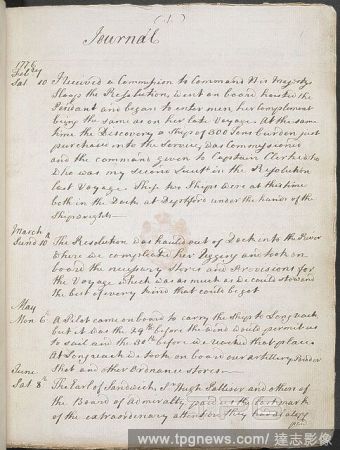 (1)
Journal
1776
Feby
Sat 10 I received a Commission to Command His Majestys
Sloop the Resolution, went on board hoisted the
Pendant and began to enter men, her complement
being the same as on her late Voyage. At the same
time the Discovery a Ship of 300 Tons burden just
purchased into the Service, was Commissioned
and the command given to Captain Clerke
who was my Second Lieut in the Resolution
last Voyage. These two Ships were at this time
both in the Dock at Deptford under the hands of the
Shipwrights—
March
Sund 10 The Resolution was hauld out of Dock into the River
where we compleated her Rigging and took on
board the necessary Stores and Provisions for
the Voyage which was as much as we could stow and
the best of every kind that could be got
May
Mon 6th A Pilot came on board to carry the Ship to Longreach
but it was the 29th before the wind would permit us
to sail and the 30th before we reached that place
At Longreach we took on board our artillery Powder
Shot and other Ordnance Stores—
June
Sat 8th The Earl of Sandwich, Sr Hugh Palliser and others of
the Board of Admiralty, paid us the last mark
of the extraordinary attention they had all
www.tpgnews.com/ 達志影像